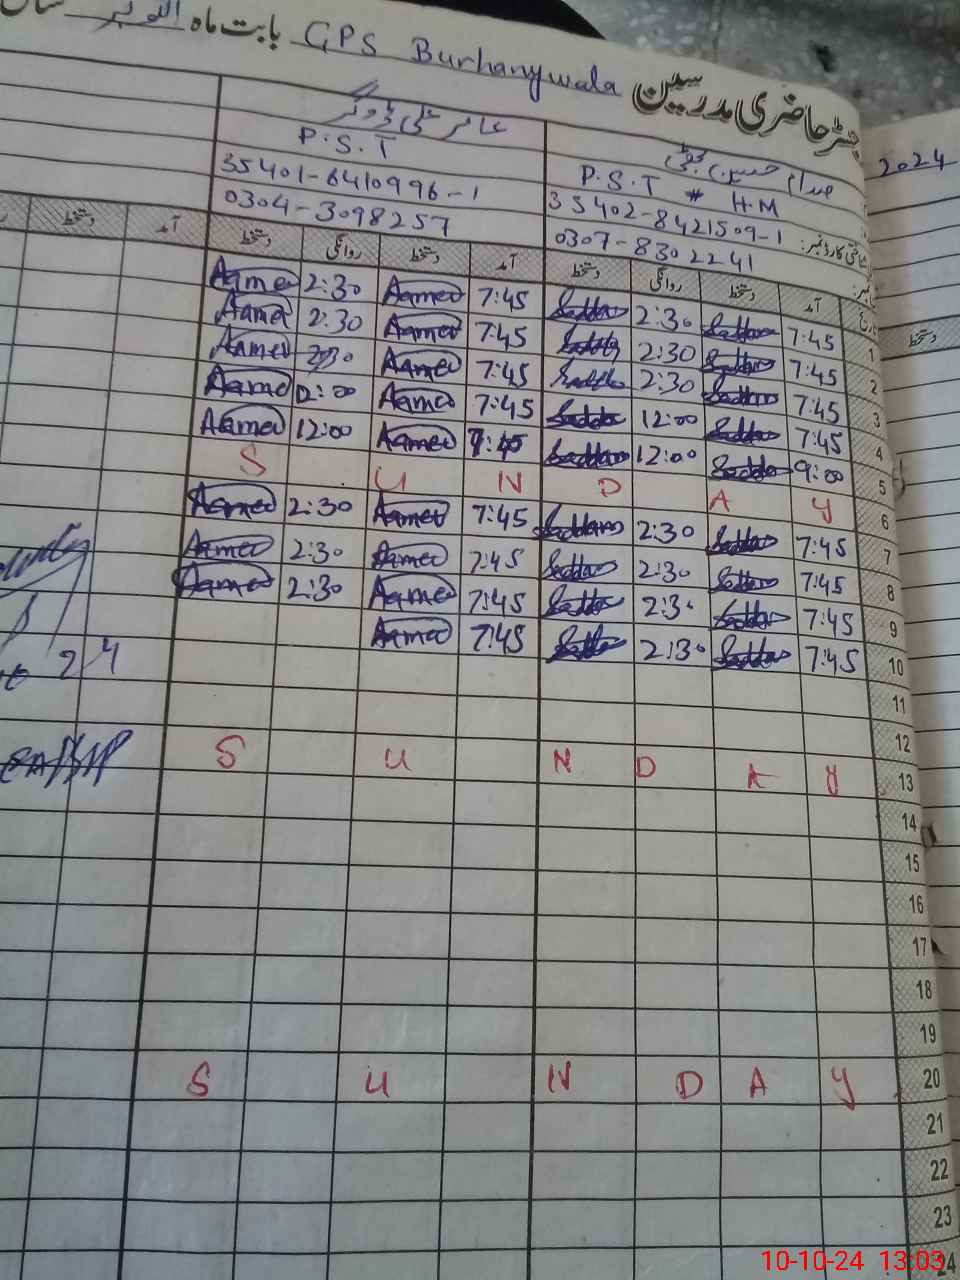 رجسٹر حاضری مدرسین GPS Burhanywala بابت ماہ اکتوبر سال
2024
صدام حسین بھٹی
P.S.T # H.M
35402-8421509-1
0307-8302241
عامر علی ڈوگر
P.S.T
35401-6410996-1
0304-3098257
آمد دستخط روانگی دستخط آمد دستخط روانگی دستخط آمد دستخط
دستخط
1 7:45 Saddam 2:30 Saddam 7:45 Aamer 2:30 Aamer
2 7:45 Saddam 2:30 Saddam 7:45 Aamer 2:30 Aamer
3 7:45 Saddam 2:30 Saddam 7:45 Aamer 2:30 Aamer
4 7:45 Saddam 12:00 Saddam 7:45 Aamer 12:00 Aamer
5 9:00 Saddam 12:00 Saddam 7:45 Aamer 12:00 Aamer
6 S U N D A Y
7 7:45 Saddam 2:30 Saddam 7:45 Aamer 2:30 Aamer
8 7:45 Saddam 2:30 Saddam 7:45 Aamer 2:30 Aamer
9 7:45 Saddam 2:30 Saddam 7:45 Aamer 2:30 Aamer
10 7:45 Saddam 2:30 Saddam 7:45 Aamer
11
12
13 S U N D A Y
14
15
16
17
18
19
20 S U N D A Y
21
22
23
24
10-10-24 13:03